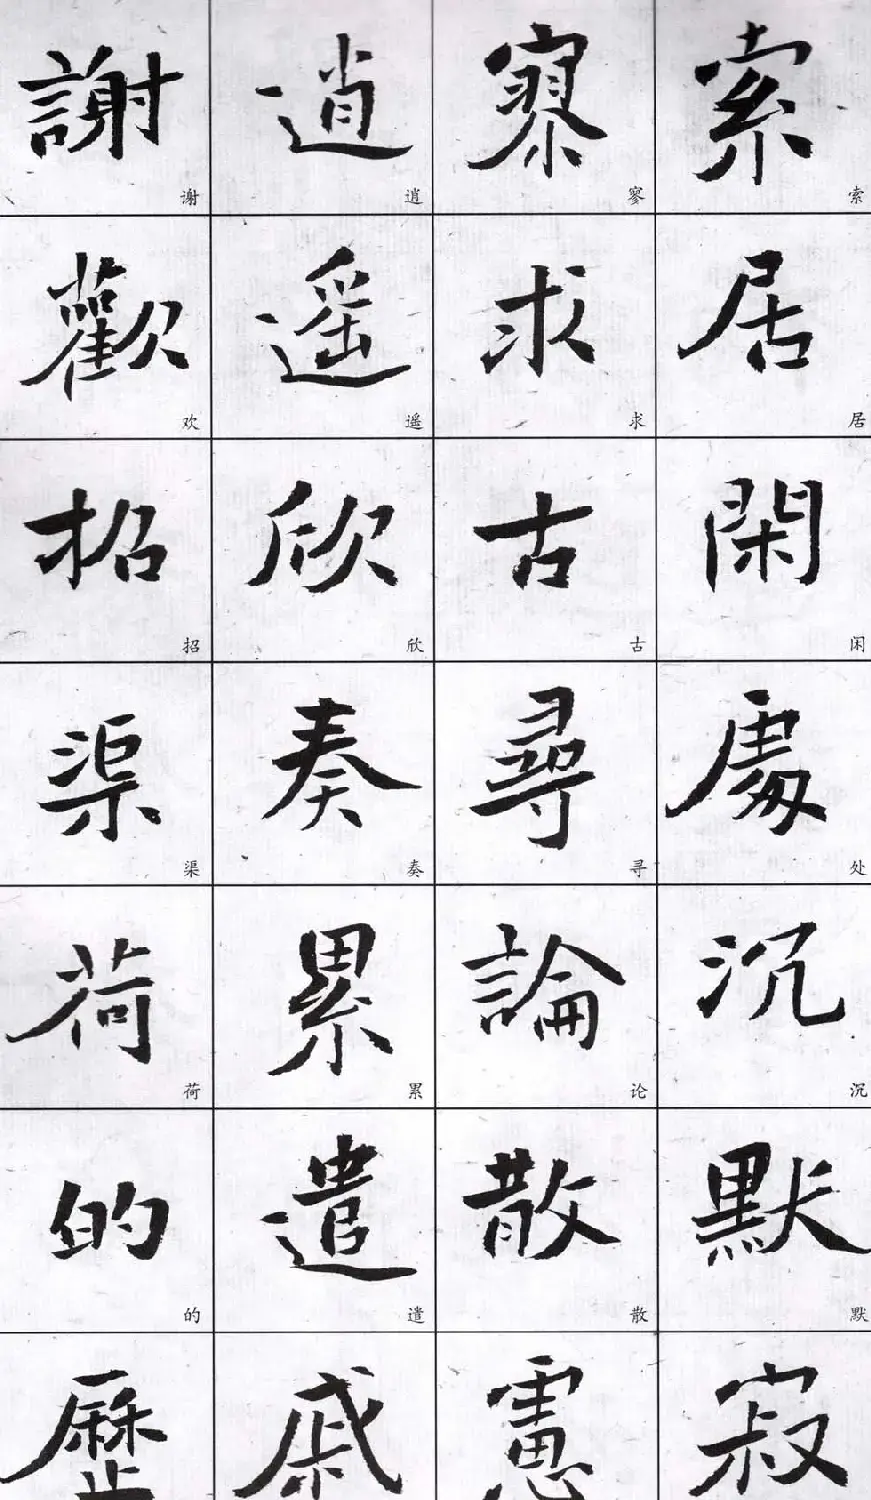 索居閑處沉默寂
索居闲处沉默
寥求古尋論散慮
寥求古寻论散
逍遥欣奏累遣戚
逍遥欣奏累遣
謝歡招渠荷的歷
谢欢招渠荷的